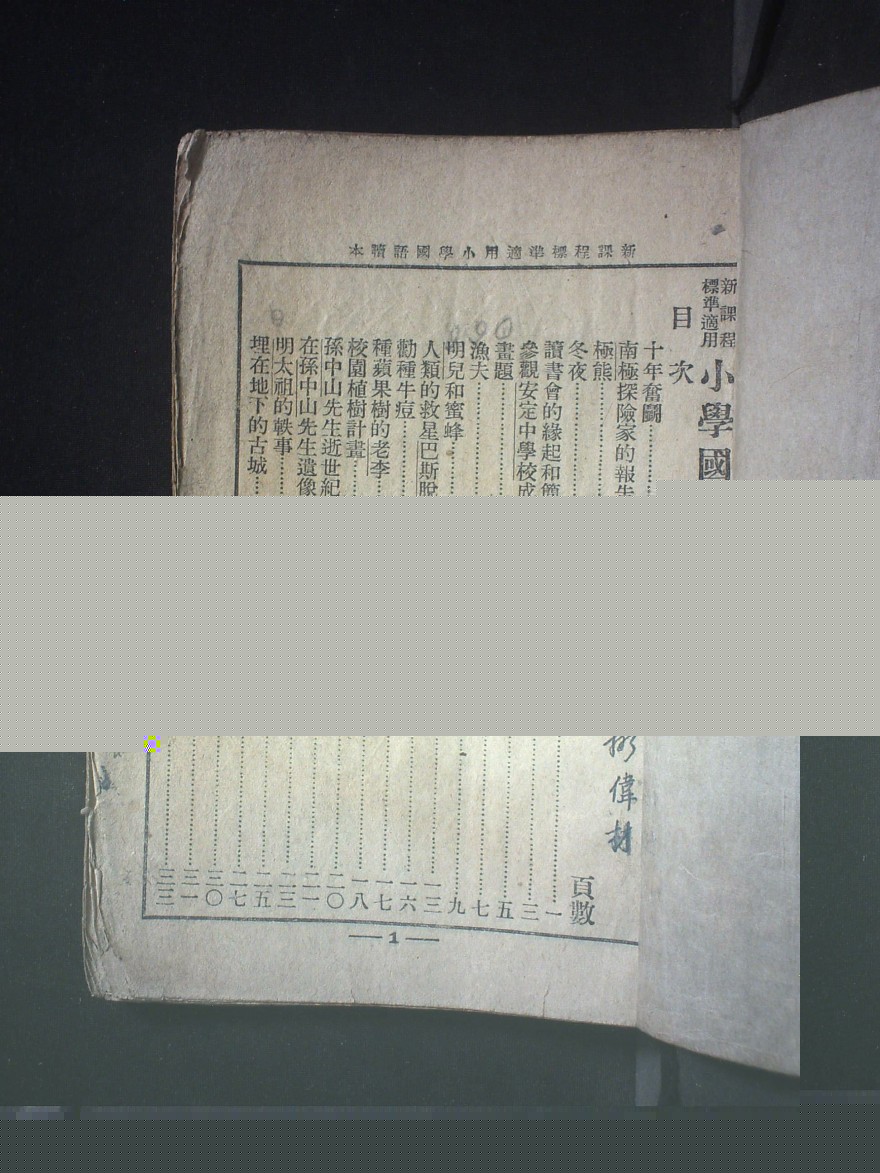 新課程標準適用小學國語讀本
新課程標準適用
小學國
目次
十年奮鬭
南極探險家的報告
極熊
冬夜
讀書會的緣起和簡
參觀安定中學校成
畫題
漁夫
明兒和蜜蜂
人類的救星巴斯脫
勸種牛痘
種蘋果樹的老李
校園植樹計畫
孫中山先生逝世紀
在孫中山先生遺像
明太祖的軼事
埋在地下的古城
偉材
頁數
一
三
五
七
九
一三
一六
一七
一八
二〇
二一
二三
二五
二七
三〇
三一
三三
1